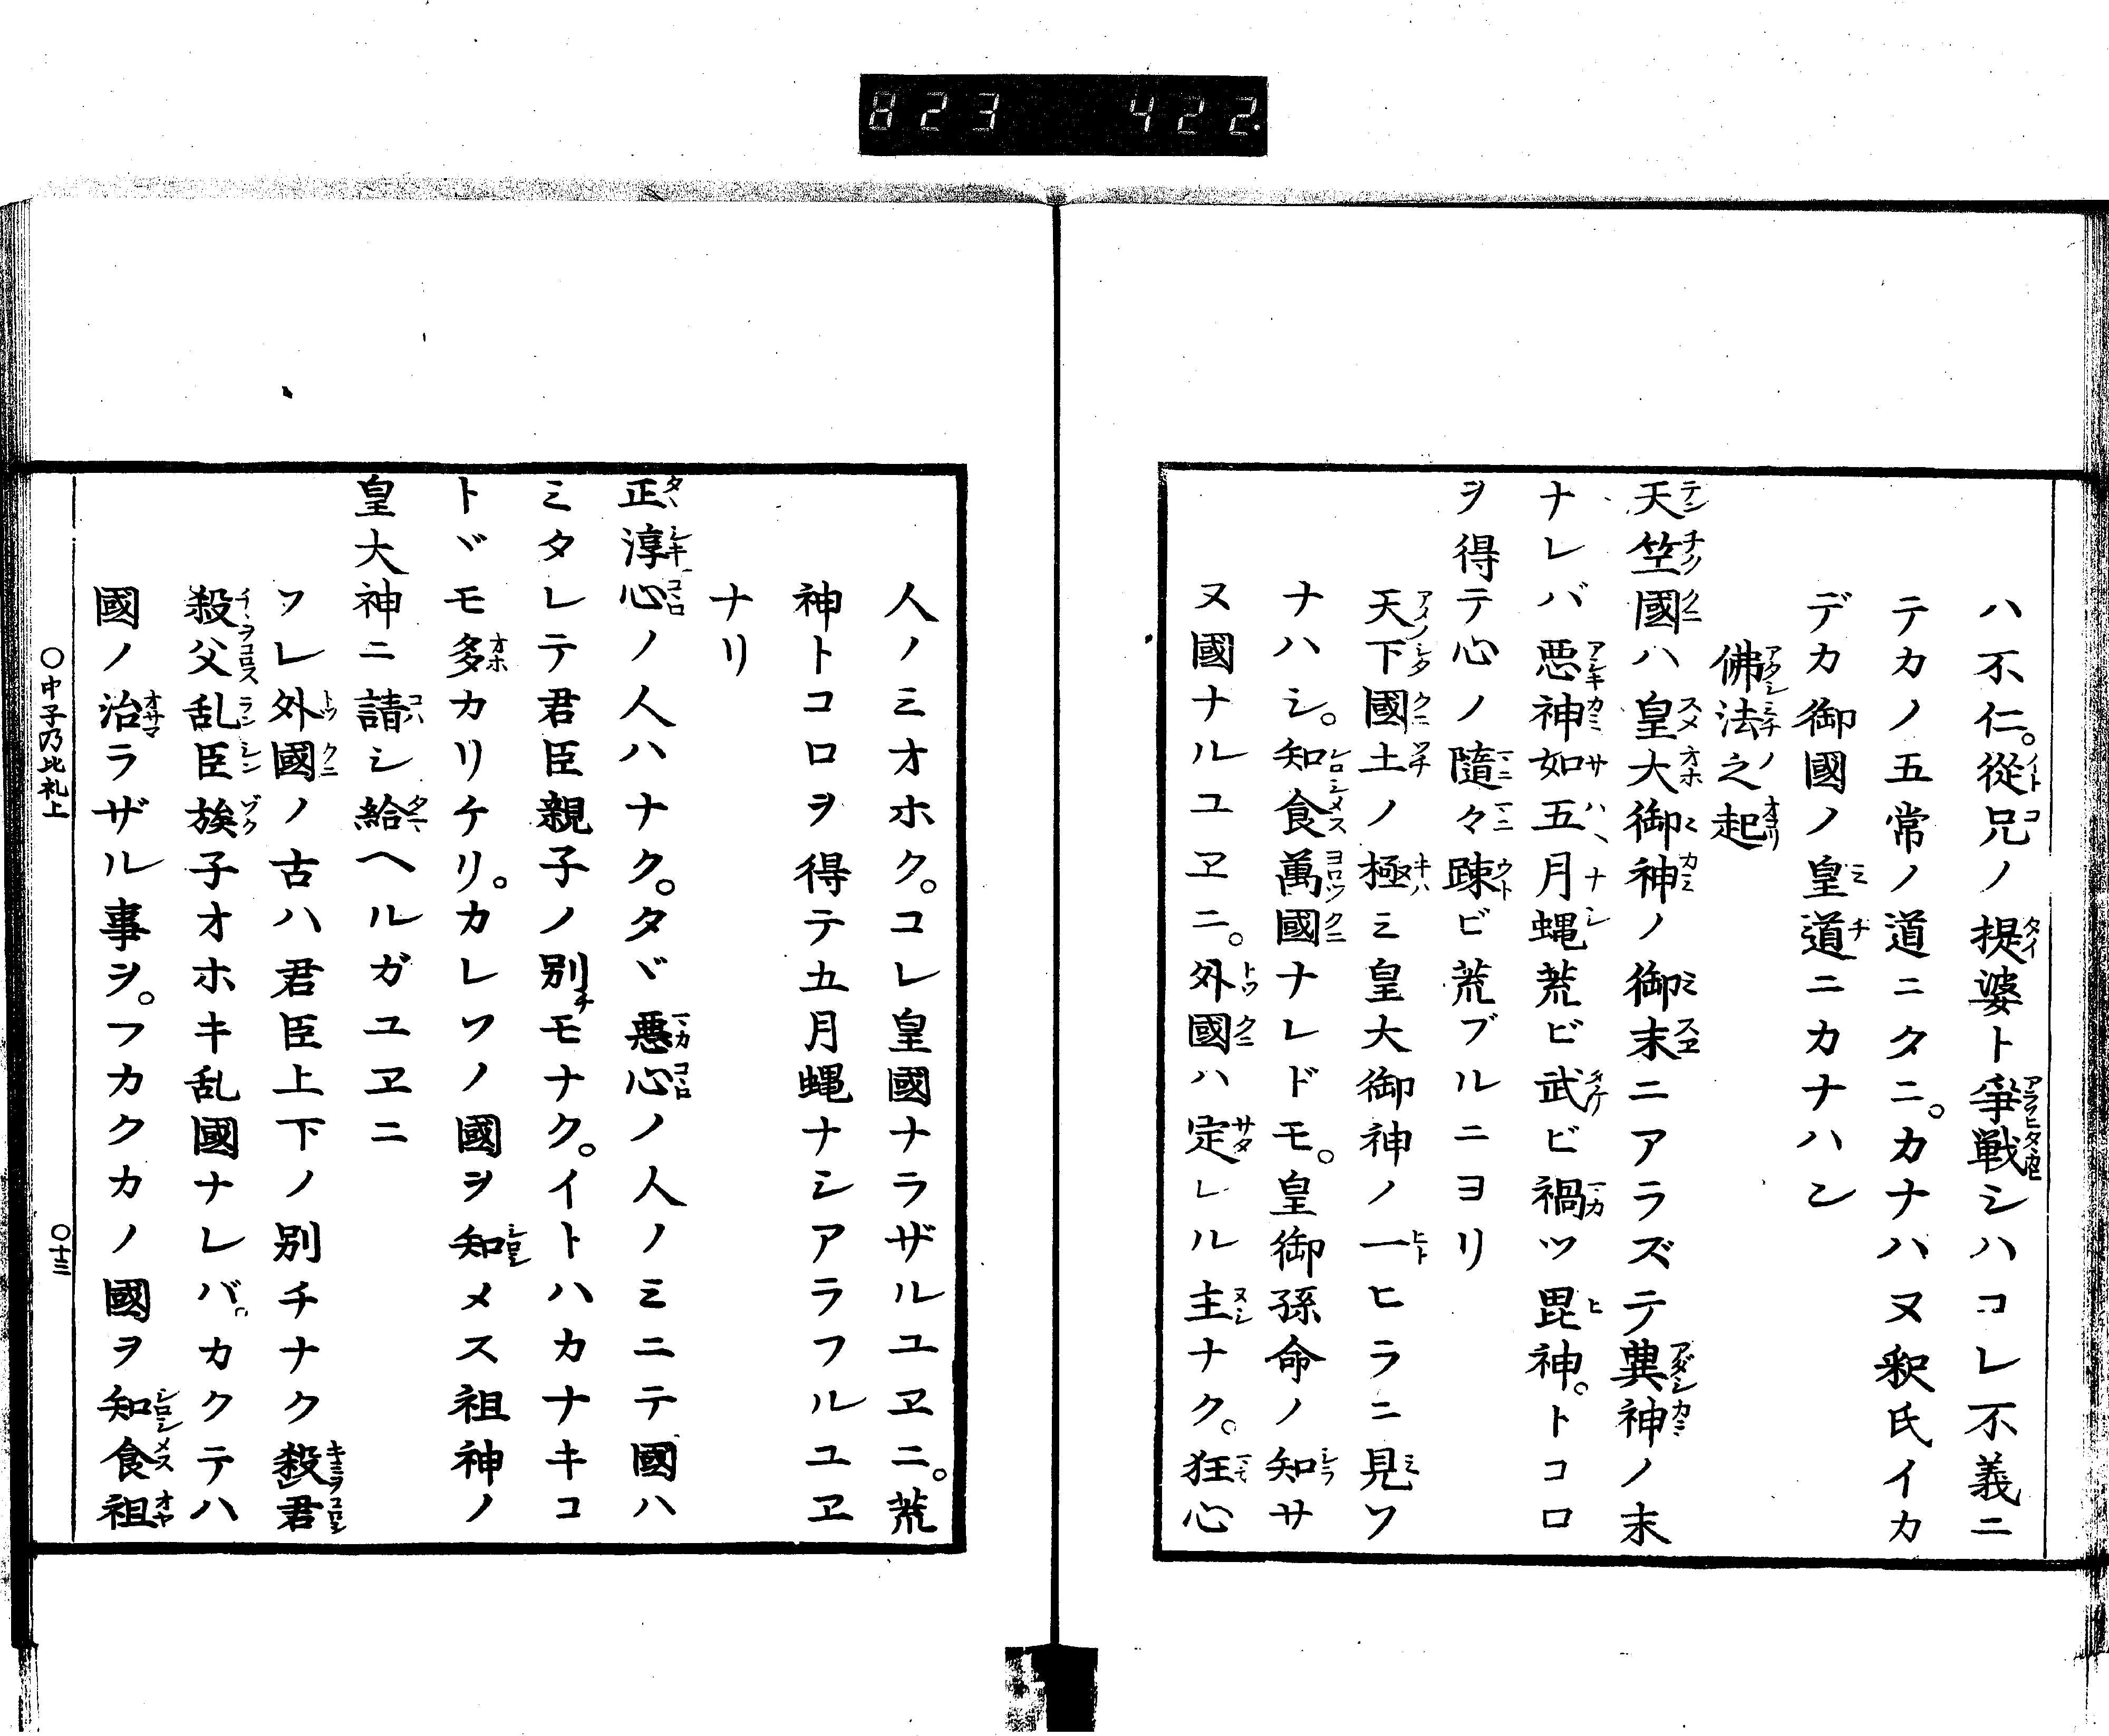 823 422
ハ不仁。從兄ノ提婆ト爭戦シハコレ不義ニ
テカノ五常ノ道ニタニ。カナハヌ釈氏イカ
デカ御國ノ皇道ニカナハン
佛法之起
天竺國ハ皇大御神ノ御末ニアラズテ異神ノ末
ナレバ悪神如五月蝿荒ビ武ビ禍ツ毘神。トコロ
ヲ得テ心ノ隨々疎ビ荒ブルニヨリ
天下國土ノ極ミ皇大御神ノ一ヒラニ見ソ
ナハシ。知食萬國ナレドモ。皇御孫命ノ知サ
ヌ國ナルユヱニ。外國ハ定レル主ナク。狂心
人ノミオホク。コレ皇國ナラザルユヱニ。荒
神トコロヲ得テ五月蝿ナシアラフルユヱ
ナリ
正淳心ノ人ハナク。タヾ悪心ノ人ノミニテ國ハ
ミタレテ君臣親子ノ別チモナク。イトハカナキコ
トヾモ多カリケリ。カレソノ國ヲ知メス祖神ノ
皇大神ニ請シ給ヘルガユヱニ
ソレ外國ノ古ハ君臣上下ノ別チナク殺君
殺父乱臣族子オホキ乱國ナレバ。カクテハ
國ノ治ラザル事ヲ。フカクカノ國ヲ知食祖
〇中子乃比礼上 〇十三